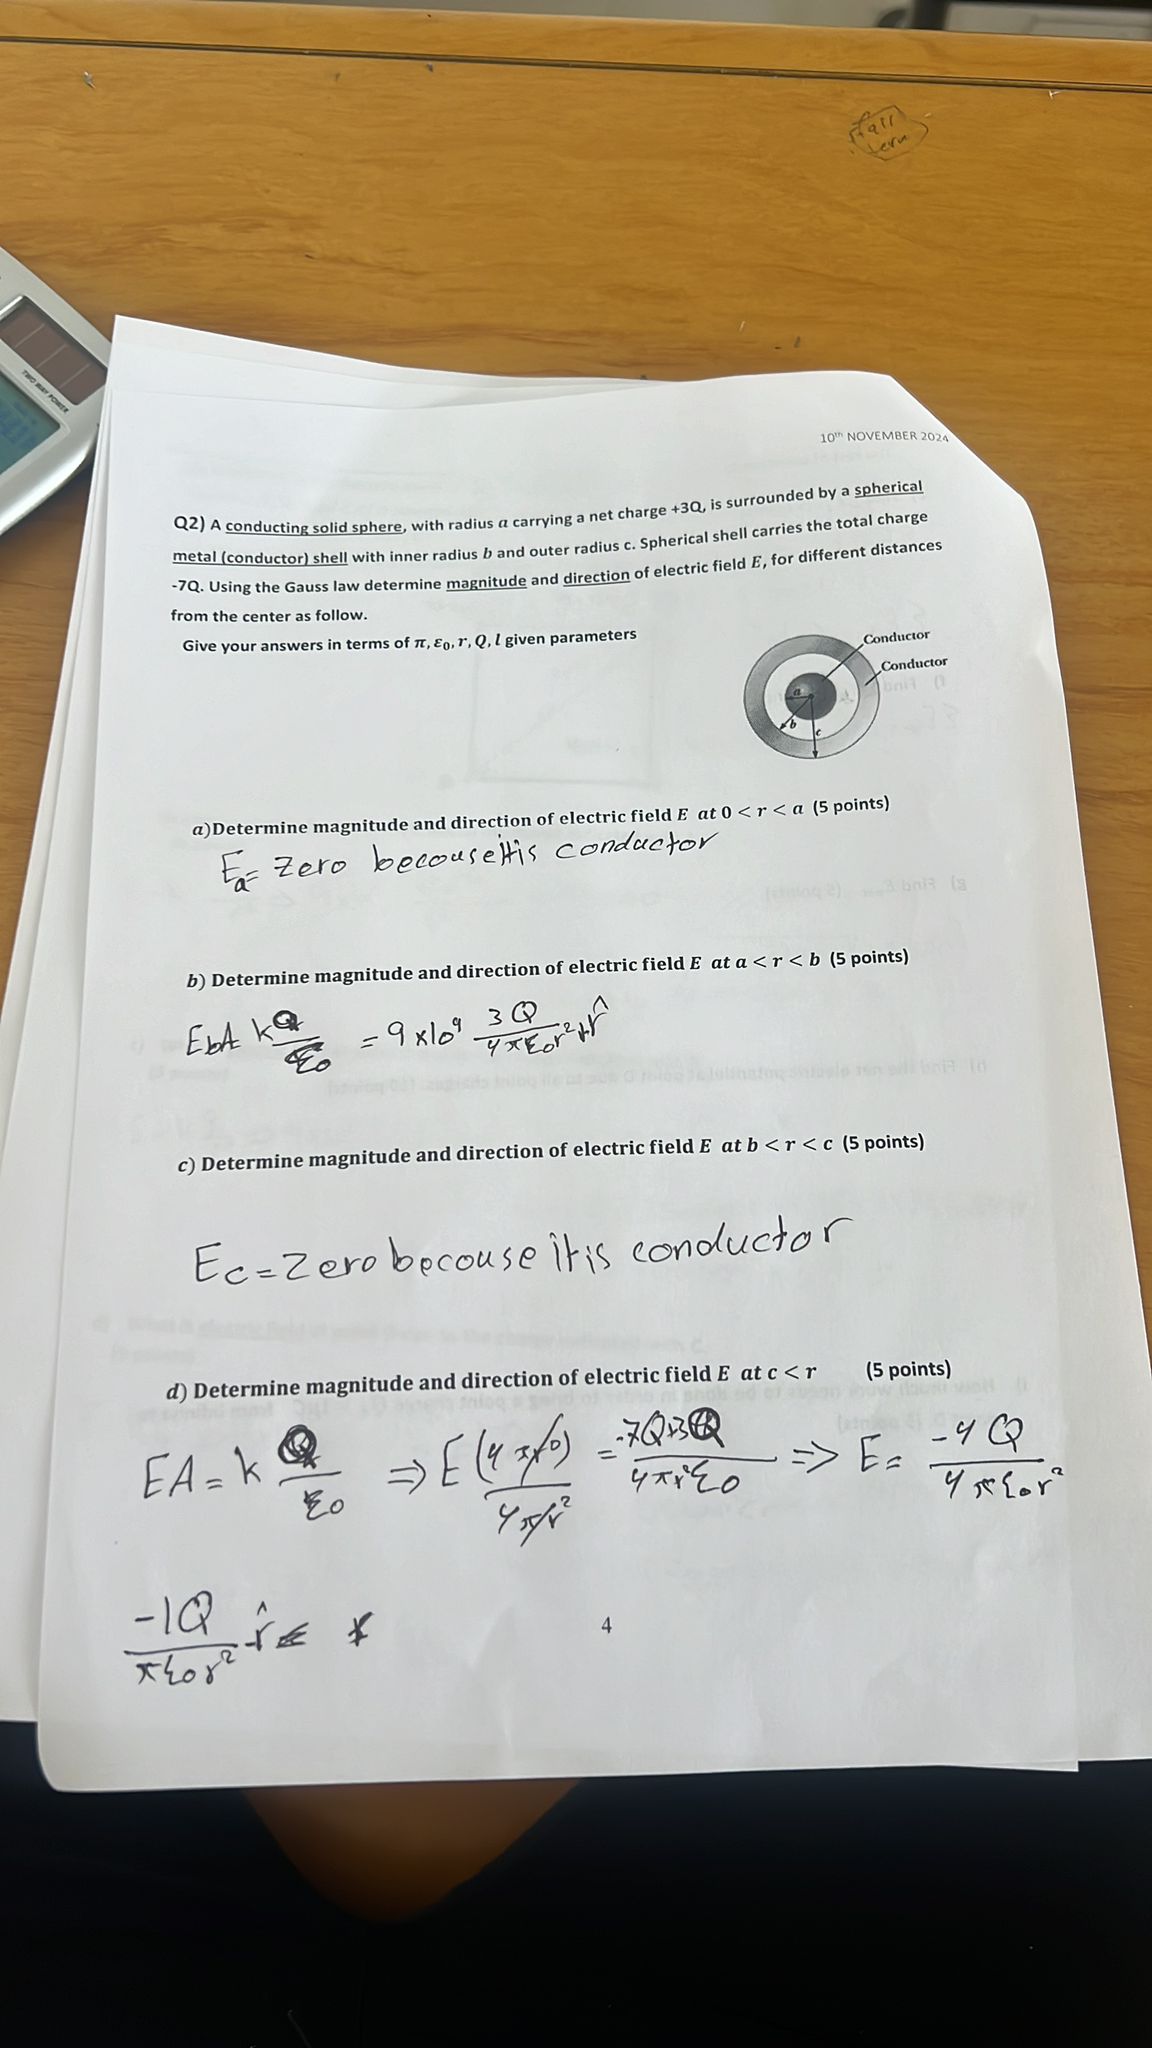 fall
10th NOVEMBER 2024
TWO WAY POWER
Q2) A conducting solid sphere, with radius a carrying a net charge +3Q, is surrounded by a spherical
metal (conductor) shell with inner radius b and outer radius c. Spherical shell carries the total charge
-7Q. Using the Gauss law determine magnitude and direction of electric field E, for different distances
from the center as follow.
Give your answers in terms of π, ε₀, r, Q, l given parameters
Conductor
Conductor
a
b
c
a)Determine magnitude and direction of electric field E at 0 < r < a (5 points)
Ea= zero becouse itis conductor
b) Determine magnitude and direction of electric field E at a < r < b (5 points)
EbA k Q/ε0 = 9x10⁹ 3Q/4πε0r² r̂
c) Determine magnitude and direction of electric field E at b < r < c (5 points)
Ec=zero becouse it is conductor
d) Determine magnitude and direction of electric field E at c < r (5 points)
EA=k Q/ε0 => = -7Q+3Q/4πr²ε0 => E= -4Q/4πε0r²
-1Q/πε0r² r̂
4